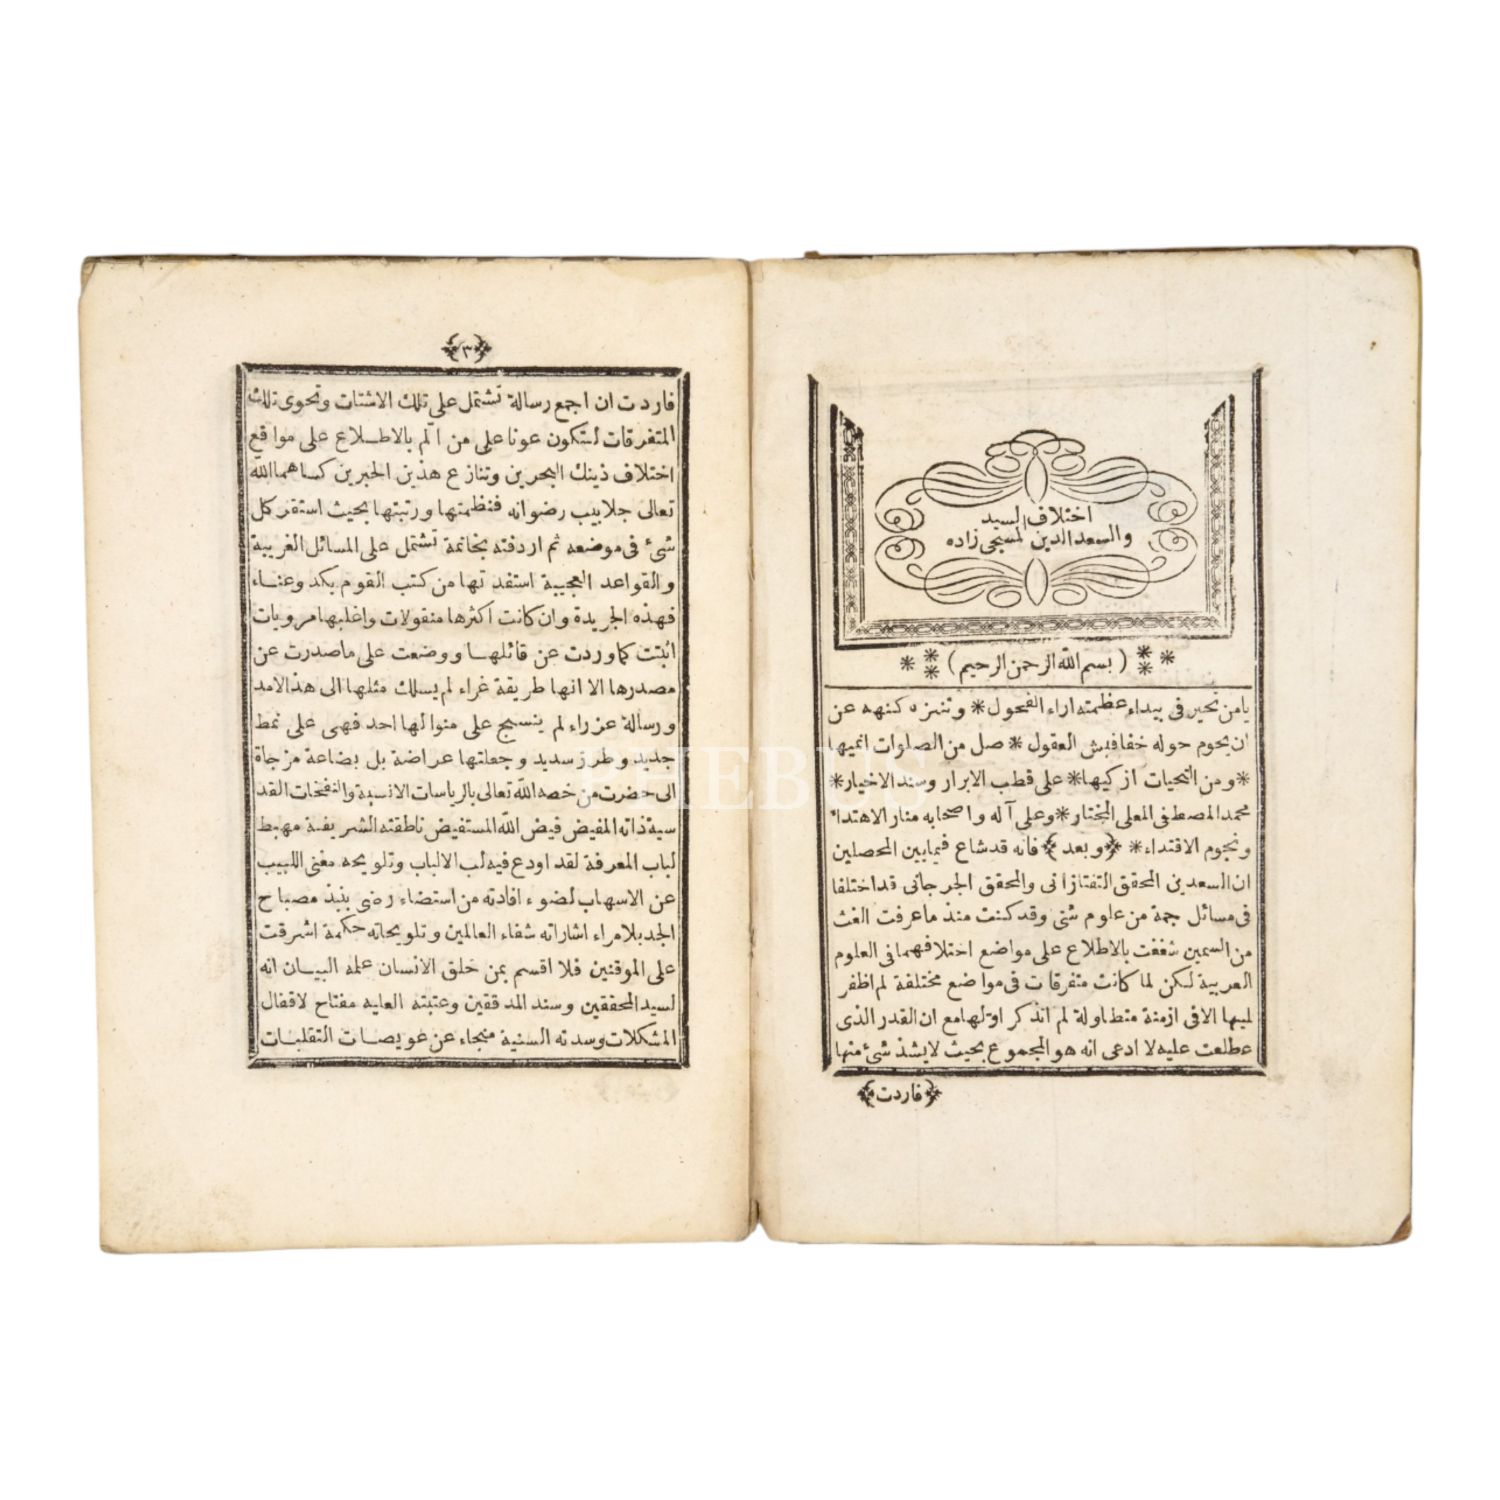 اختلاف السيد
والسعد الدين لمسجى زاده
** ( بسم الله الرحمن الرحيم ) **
يامن تحير فى بيداء عظمته اراء الفحول * وتنزه كنهه عن
ان يحوم حوله خفافيش العقول * صل من الصلوات انميها
* ومن التحيات ازكيها * على قطب الابرار وسند الاخيار *
محمد المصطفى المعلى المختار * وعلى آله واصحابه منار الاهتداء
ونجوم الاقتداء * ﴿ وبعد ﴾ فانه قد شاع فيما بين المحصلين
ان السعدين المحقق التفتازانى والمحقق الجرجانى قد اختلفا
فى مسائل جمة من علوم شتى وقد كنت منذ ما عرفت الغث
من السمين شغفت بالاطلاع على مواضع اختلافهما فى العلوم
العربية لكن لما كانت متفرقات فى مواضع مختلفة لم اظفر
عليها الا فى ازمنة متطاولة لم اتذكر اولها مع ان القدر الذى
اطلعت عليه لا ادعى انه هو المجموع بحيث لا يشذ شئ منها
﴿ فاردت ﴾
﴿٣﴾
فاردت ان اجمع رسالة تشتمل على تلك الاشتات وتحوى تلك
المتفرقات لتكون عونا على من الّم بالاطلاع على مواقع
اختلاف ذينك البحرين وتنازع هذين الحبرين كساهما الله
تعالى جلابيب رضوانه فنظمتها ورتبتها بحيث استقر كل
شئ فى موضعه ثم اردفته بخاتمة تشتمل على المسائل الغريبة
والقواعد العجيبة استفدتها من كتب القوم بكد وعناء
فهذه الجريدة وان كانت اكثرها منقولات واغلبها مرويات
اثبتت كما وردت عن قائلها ووضعت على ما صدرت عن
مصدرها الا انها طريقة غراء لم يسلك مثلها الى هذ الامد
ورسالة عزراء لم ينسج على منوالها احد فهى على نمط
جديد وطرز سديد وجعلتها عراضة بل بضاعة مزجاة
الى حضرت من خصه الله تعالى بالرياسات الانسية والنفخات القد
سية ذاته المفيض فيض الله المستفيض ناطقته الشريفة مهبط
لباب المعرفة لقد اودع فيه لب الالباب وتلويحه مغنى اللبيب
عن الاسهاب لضوء افادته من استضاء رضى بنبذ مصباح
الجد بلامراء اشاراته شفاء العالمين وتلويحاته حكمة اشرقت
على الموقنين فلا اقسم بمن خلق الانسان علمه البيان انه
لسيد المحققين وسند المدققين وعتبته العليه مفتاح لاقفال
المشكلات وسدته السنية منجاء عن عويصات التقلبات
PHEBUS